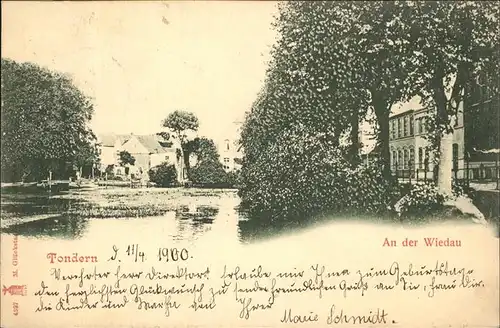 Tondern d. 11/4 1900.
An der Wiedau
Verehrter Herr Direktor! Erlaube mir Ihna zum Geburtstage
den herzlichsten Glückwunsch zu senden freundlichen Gruß an Sie, Frau Dir.
die Kinder und Martha von Ihrer
Marie Schmidt.
M. Glückstadt
4397